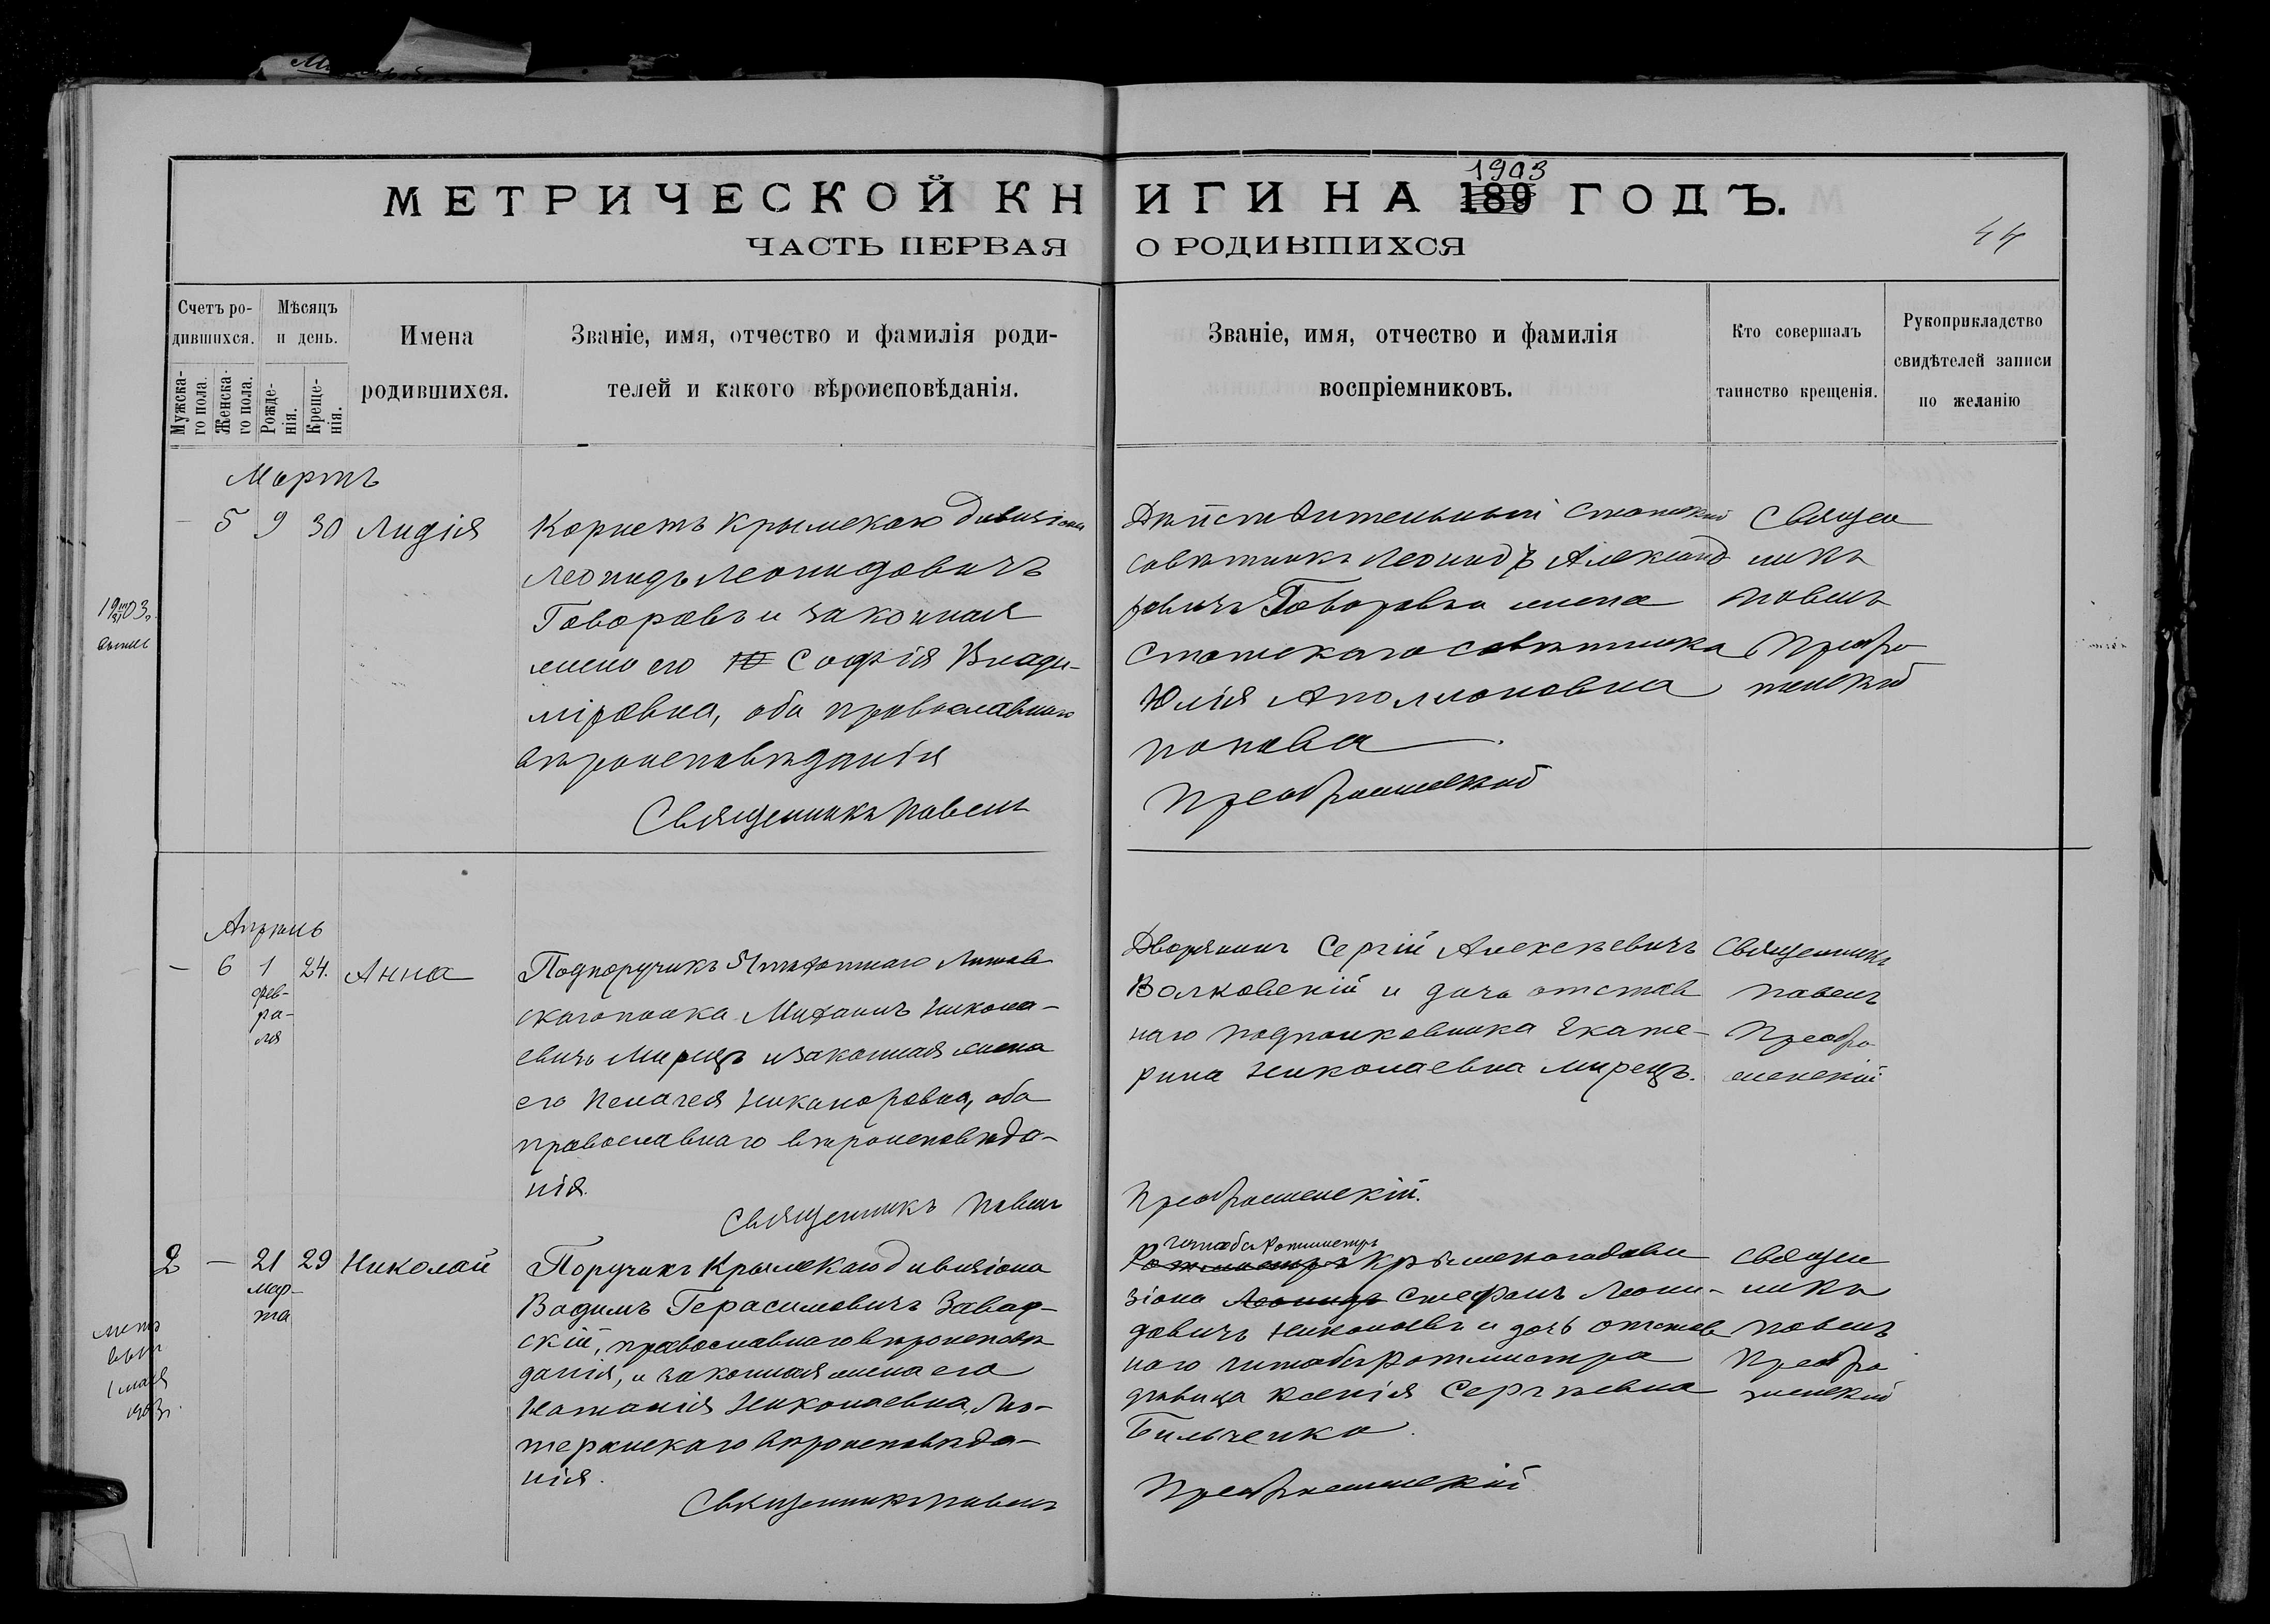 МЕТРИЧЕСКОЙ КНИГИ НА 189 ГОДЪ.
1903
ЧАСТЬ ПЕРВАЯ О РОДИВШИХСЯ
44
Счетъ ро-
дившихся.
Мужска-
го пола.
Женска-
го пола.
Мѣсяцъ
и день.
Рожде-
нія.
Креще-
нія.
Имена
родившихся.
Званіе, имя, отчество и фамилія роди-
телей и какого вѣроисповѣданія.
Званіе, имя, отчество и фамилія
воспріемниковъ.
Кто совершалъ
таинство крещенія.
Рукоприкладство
свидѣтелей записи
по желанію
Мартъ
— 5 9 30 Лидія
Корнетъ Крымскаго дивизіона
Леонидъ Леонидовичъ
Говоровъ и законная
жена его Софія Влади-
міровна, оба православнаго
вѣроисповѣданія
Священникъ Павелъ
Дѣйствительный статскій
совѣтникъ Леонидъ Александ
ровичъ Говоровъ и жена
статскаго совѣтника
Юлія Аполлоновна
Попова
Преображенскій
Священ
никъ
Павелъ
Преобра
женскій
1903
Апрѣль
— 6 1 24. Анна
фев-
ра-
ля
Подпоручикъ 51 пѣхотнаго Литов
скаго полка Михаилъ Никола-
евичъ Мирецъ и законная жена
его Пелагея Никаноровна, оба
православнаго вѣроисповѣда-
нія.
Священникъ Павелъ
Дворянинъ Сергій Алексѣевичъ
Волковскій и дочь отстав
наго подполковника Екате-
рина Николаевна Мирецъ.
Преображенскій.
Священникъ
Павелъ
Преобра
женскій
2 — 21 29 Николай
Мар-
та
Поручикъ Крымскаго дивизіона
Вадимъ Герасимовичъ Завад-
скій, православнаго вѣроисповѣ
данія, и законная жена его
Наталія Николаевна, лю-
теранскаго вѣроисповѣда-
нія.
Священникъ Павелъ
штабъ ротмистръ
Ротмистръ Крымскаго диви
зіона Леонидъ Стефанъ Леони-
довичъ Николаевъ и дочь отстав
наго штабъ ротмистра
дѣвица Ксенія Сергѣевна
Бильченко.
Преображенскій
Священ
никъ
Павелъ
Преобра
женскій
1 мая
1903 г.